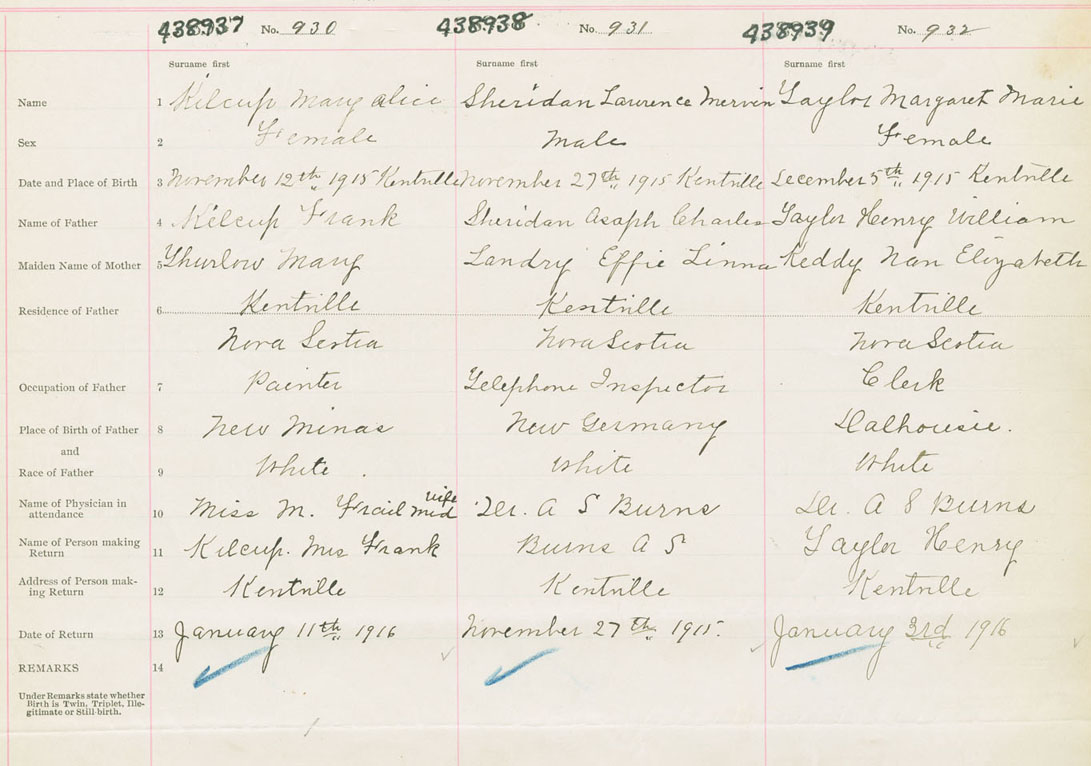 438937 No. 930 438938 No. 931 438939 No. 932
Surname first Surname first Surname first
Name 1 Kilcup Mary Alice Sheridan Lawrence Mervin Taylor Margaret Marie
Sex 2 Female Male Female
Date and Place of Birth 3 November 12th 1915 Kentville November 27th 1915 Kentville December 5th 1915 Kentville
Name of Father 4 Kilcup Frank Sheridan Asaph Charles Taylor Henry William
Maiden Name of Mother 5 Thurlow Mary Landry Effie Linna Keddy Nan Elizabeth
Residence of Father 6 Kentville Kentville Kentville
Nova Scotia Nova Scotia Nova Scotia
Occupation of Father 7 Painter Telephone Inspector Clerk
Place of Birth of Father 8 New Minas New Germany Dalhousie.
and
Race of Father 9 White White White
Name of Physician in
attendance 10 Miss M. Frail mid wife Dr. A S Burns Dr. A S Burns
Name of Person making
Return 11 Kilcup. Mrs Frank Burns A S Taylor Henry
Address of Person mak-
ing Return 12 Kentville Kentville Kentville
Date of Return 13 January 11th 1916 November 27th 1915. January 3rd 1916
REMARKS 14
Under Remarks state whether
Birth is Twin, Triplet, Ille-
gitimate or Still-birth.